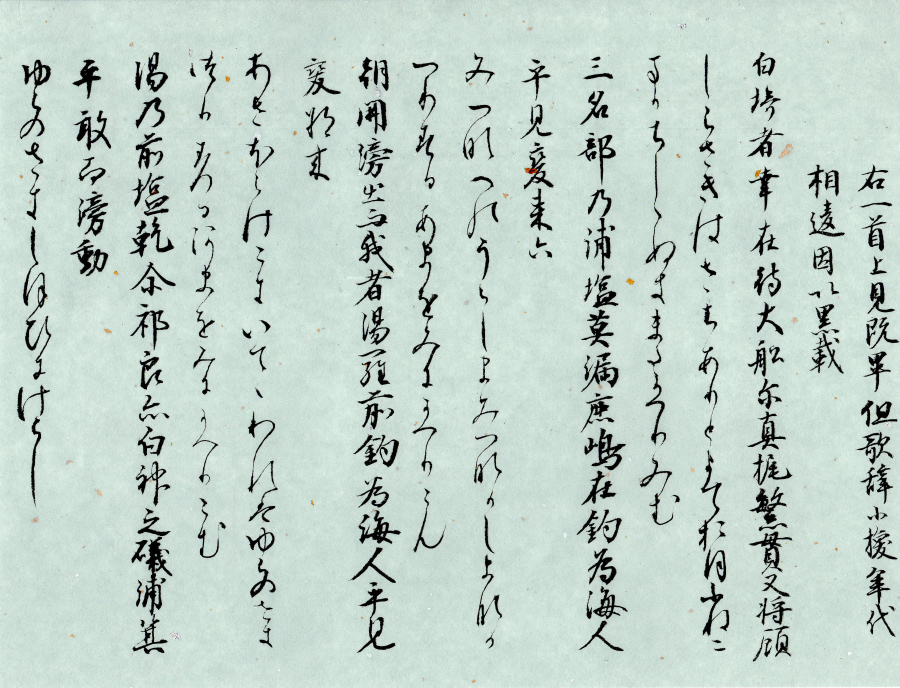 右一首上見既畢但歌辞小換年代
相違因以累載
白埼者幸在待大船尓真梶繁貫又将顧
しらさきはさちありとまておほふねに
まかちしゝぬきまたかへりみむ
三名部乃浦塩莫満鹿嶋在釣為海人
乎見変来六
みつなへのうらしほみつなかしまなる
つりするあまをみにかへりこん
朝開滂出而我者湯羅前釣為海人乎見
変将来
あさほらけこきいてゝわれはゆらのさき
つりするあまをみにかへりこむ
湯乃前塩乾尓祁良志白神之礒浦箕
乎敢而滂動
ゆらのさきしほひにけらし